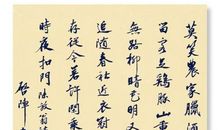 莫笑農家臘酒
留客足鷄豚山重
無路柳暗花明又
追随春社近衣
存從今若許閒乗
時夜扣門陸放翁
啓